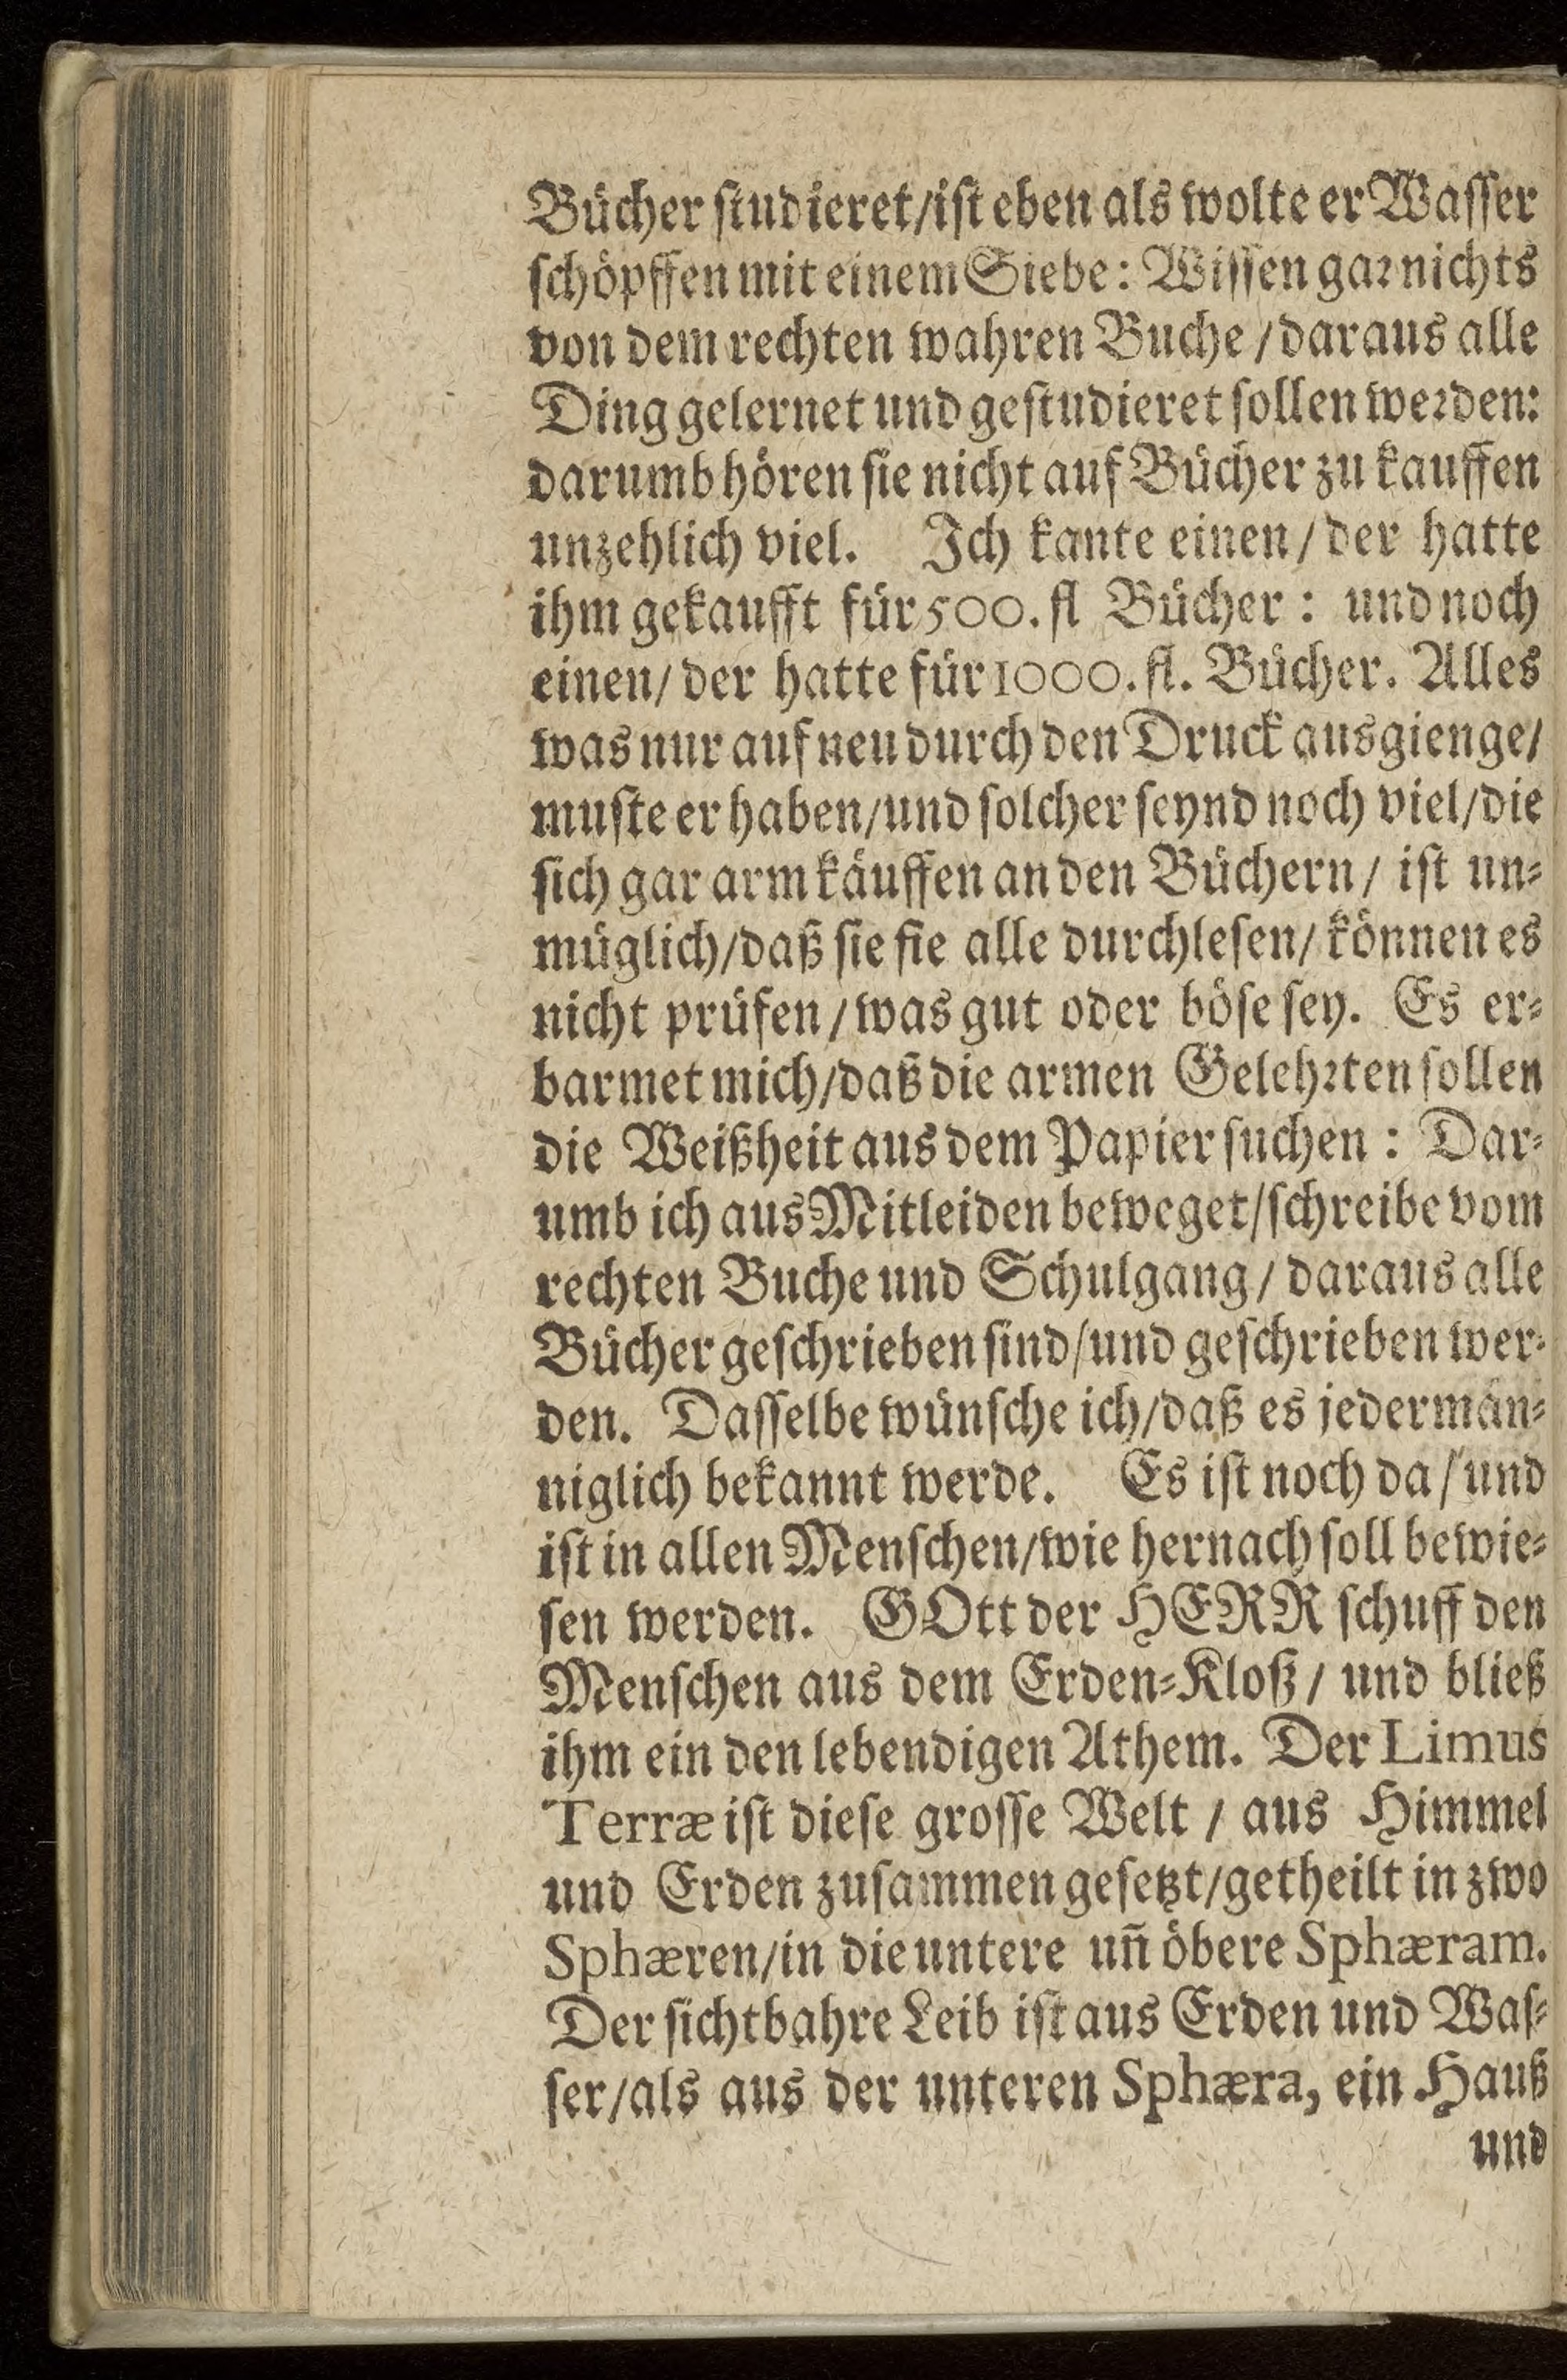 Bücher ſtudieret/iſt eben als wolte er Waſſer
ſchöpffen mit einem Siebe: Wiſſen gaꝛ nichts
von dem rechten wahren Buche / daraus alle
Ding gelernet und geſtudieret ſollen weꝛden:
darumb hören ſie nicht auf Bücher zu kauffen
unzehlich viel. Ich kante einen / der hatte
ihm gekaufft für 500. fl Bücher : und noch
einen/ der hatte für 1000. fl. Bücher. Alles
was nur auf neu durch den Druck ausgienge/
muſte er haben/und ſolcher ſeynd noch viel/die
ſich gar arm käuffen an den Büchern / iſt un⸗
müglich/daß ſie ſie alle durchleſen/ können es
nicht prüfen / was gut oder böſe ſey. Es er⸗
barmet mich/daß die armen Gelehꝛten ſollen
die Weißheit aus dem Papier ſuchen : Dar⸗
umb ich aus Mitleiden beweget/ſchreibe vom
rechten Buche und Schulgang / daraus alle
Bücher geſchrieben ſind/und geſchrieben wer⸗
den. Daſſelbe wünſche ich/daß es jedermän⸗
niglich bekannt werde. Es iſt noch da / und
iſt in allen Menſchen/wie hernach ſoll bewie⸗
ſen werden. GOtt der HERR ſchuff den
Menſchen aus dem Erden⸗Kloß / und bließ
ihm ein den lebendigen Athem. Der Limus
Terræ iſt dieſe groſſe Welt / aus Himmel
und Erden zuſammen geſetzt/getheilt in zwo
Sphæren/in die untere uñ öbere Sphæram.
Der ſichtbahre Leib iſt aus Erden und Waſ⸗
ſer/als aus der unteren Sphæra, ein Hauß
und